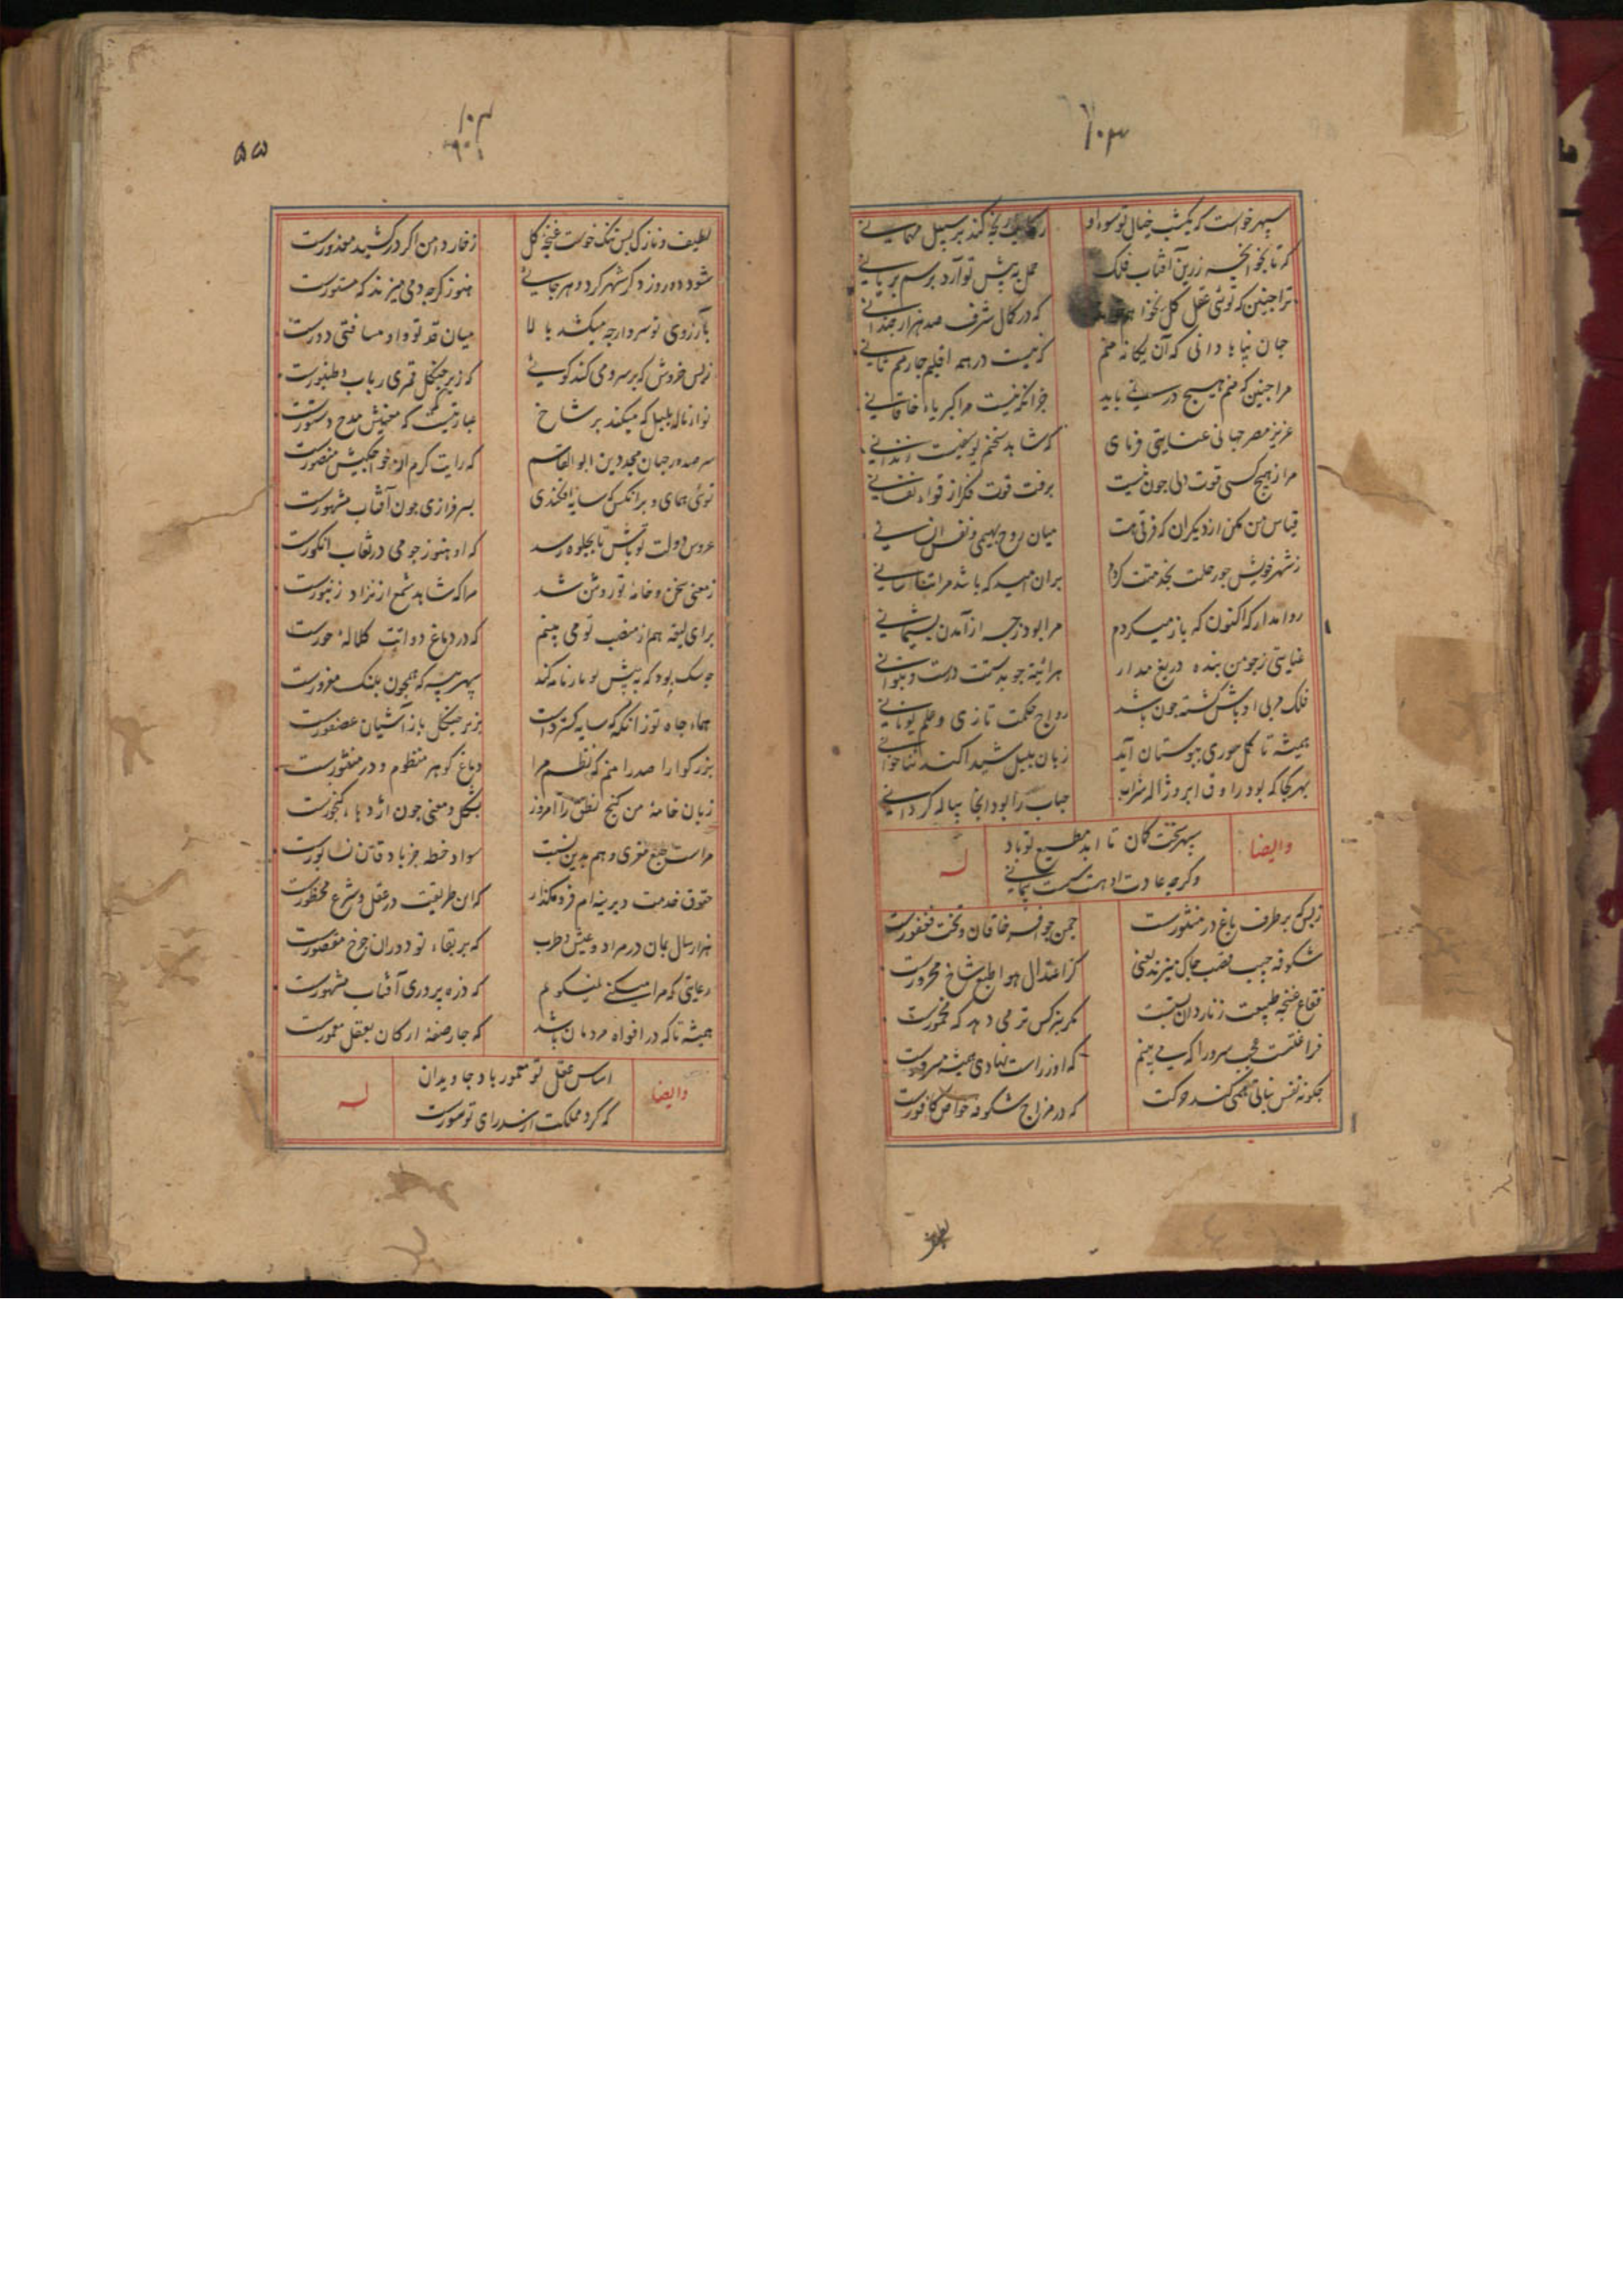 ۱۰۳
سپهر خواست که یکشب خیال تو سوی او
رکاب رنجه کند بر سبیل مهمانی
که تا بخوانچه زرین آفتاب فلک
حمل به پیش تو آرد برسم بریانی
ترا چنین که توئی عقل کل نخواهم
که در کمال شرف صد هزار چندانی
جهان پناها دانی که آن یگانه منم
که نیست در همه اقلیم چارمم ثانی
مرا چنین که منم هیچ در نمی باید
جز آنکه نیست مرا کبریاء خاقانی
عزیز مصر جهانی عنایتی فرمای
که شاهد سخنم یوسفیست زندانی
مرا ز هیچ کسی قوت دلی چون نیست
برفت قوت فکر از قواء نفسانی
قیاس من مکن از دیگران که فرقی هست
میان روح بهیمی و نفس انسانی
ز شهر خویش چو رحلت بخدمتت کردم
بران امید که باشد مرا تن آسانی
روا مدار که اکنون که باز میکردم
مرا بود ز چه از آمدن پشیمانی
عنایتی ز چو من بنده دریغ مدار
هرآینه چو بدستت درست و بتوانی
فلک مربی اوباش گشته چون باشد
رواج حکمت تازی و علم یونانی
همیشه تا گل سوری ببوستان آید
زبان بلبل شیدا کند ثناخوانی
بهر کجا که بود راوق ابر و ژاله شراب
حباب را بود آنجا پیاله گردانی
وایضا
سپهر سخت کمان تا ابد مطیع تو باد
وگرچه عادت او هست سست پیمانی
له
ز بس که بر طرف باغ در منثورست
چمن چو افسر خاقان و تخت فغفورست
شکوفه جیب قصب چاک میزند یعنی
کز اعتدال هوا طبع شاخ محرورست
فقاع غنچه طبیعت ز ناردان بست
مگر بنرگس تر می دهد که مخمورست
فراغتست عجب سرو را که می بینم
که او ز راست نهادی همیشه مسرورست
چگونه نفس نباتی همی کند حرکت
که در مزاج شکوفه خواص کافورست
لطیف
۱۰۴
۵۵
لطیف و نازک بس تنک خوست غنچه گل
ز خار دامن اگر در کشید معذورست
شود ده روز دگر شهر گرد و هر جائی
هنوز گرچه دمی میزند که مستورست
بآرزوی تو سرو ارچه میکشد بالا
میان قد تو و او مسافتی دورست
ز بس خروش که بر سرو می کند گوئی
که زیر چنگل قمری رباب و طنبورست
نوا و ناله بلبل که میکند بر شاخ
عبارتیست که معنیش مدح دستورست
سر صدور جهان مجد دین ابو القاسم
که رایت کرم از خواجگیش منصورست
توئی همای و بر آنکس که سایه افکندی
بسرفرازی چون آفتاب مشهورست
عروس دولت تو باش تا بجلوه رسد
که او هنوز چو می در نقاب انگورست
ز معنی سخن و خامه تو روشن شد
مرا که شاهد شمع از نژاد زنبورست
برای لیقه هم از منصب تو می بینم
که در دماغ دواتت کلاله حورست
چه سک بود که به پیش تو بارنامه کند
سپهر پیر که همچون پلنک مغرورست
هماء جاه تو زانگه که سایه گستردست
بزیر چنگل باز آشیان عصفورست
بزرگوارا صدرا منم که نظم مرا
دماغ گوهر منظوم و در منثورست
زبان خامه من گنج نطق را امروز
بشکل و معنی چون اژدها و گنجورست
مراست طبع مغری و هم بدین نسبت
سواد خطه جرباد قان نسابورست
حقوق خدمت دیرینه ام فرو مگذار
که این طریقت در عقل و شرع محظورست
هزار سال بمان در مراد و عیش و طرب
که بر بقاء تو دوران چرخ مقصورست
رعایتی که مرا میکنی نمیگویم
که ذره پروری آفتاب مشهورست
همیشه تا که در افواه مردمان باشد
که چار صفه ارکان بعقل معمورست
وایضا
اساس عقل تو معمور باد جاویدان
که گرد مملکت از سد رای تو سورست
له